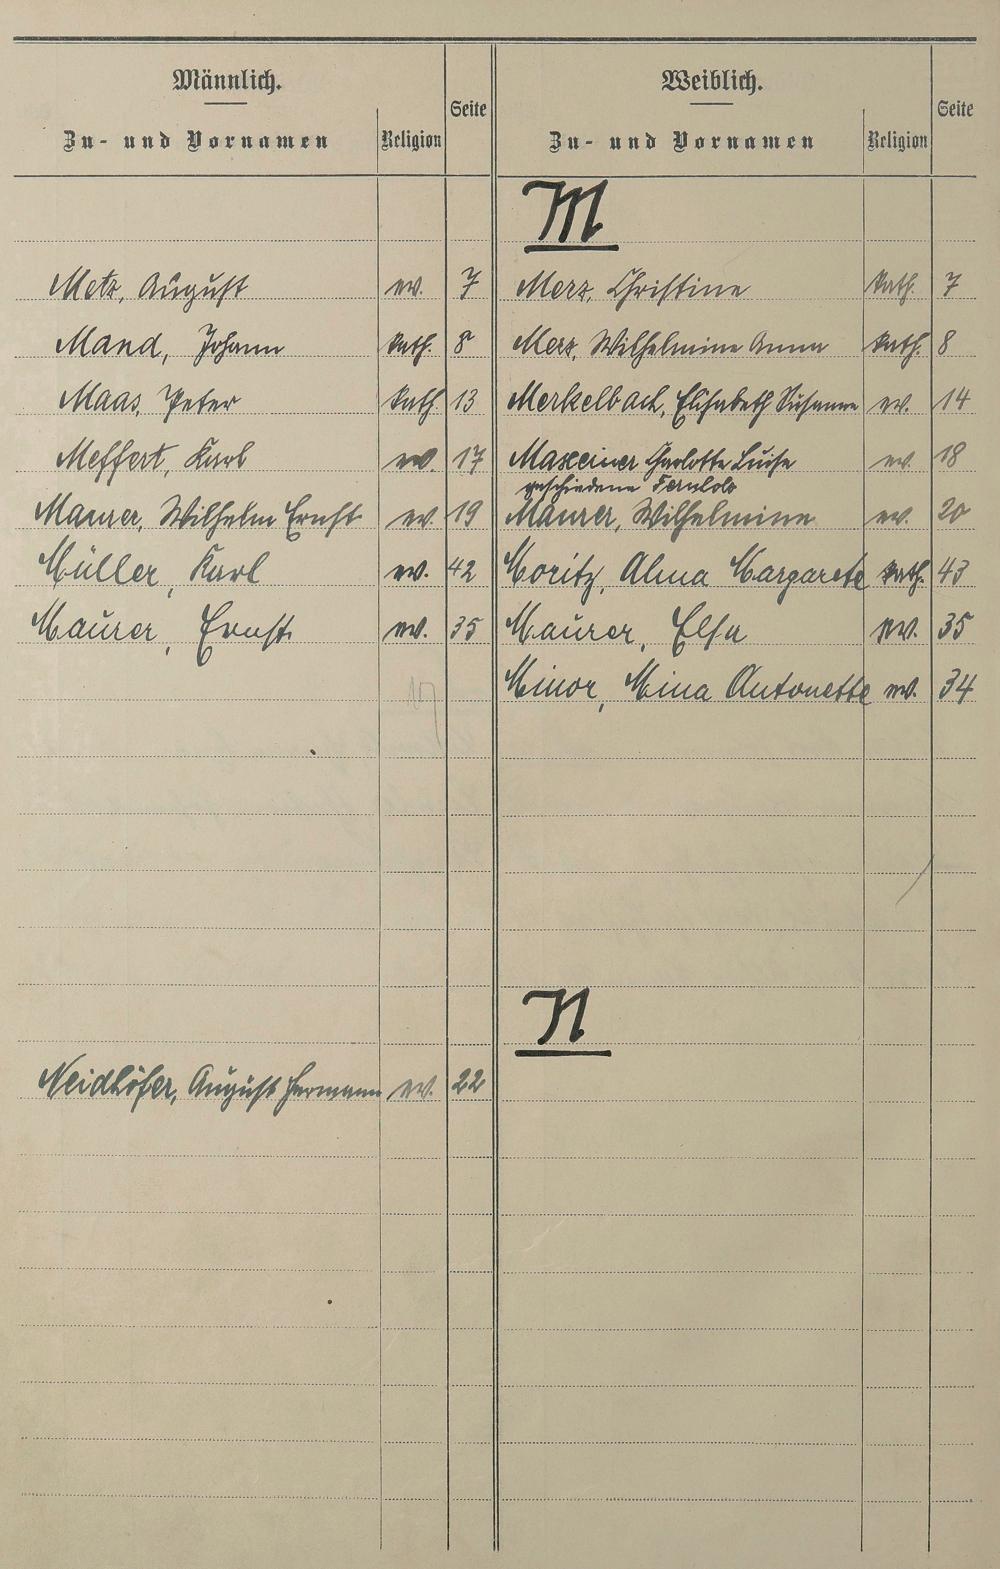 Männlich. Weiblich.
Zu- und Vornamen Religion Seite Zu- und Vornamen Religion Seite
M
Metz, August ev. 7 Merz, Christine kath. 7
Mand, Johann kath. 8 Merz, Wilhelmine Anna kath. 8
Maas, Peter kath. 13 Merkelbach, Elisabeth Susanne ev. 14
Meffert, Karl ev. 17 Maxeiner Charlotte Luise ev. 18
geschiedene
Maurer, Wilhelm Ernst ev. 19 Maurer, Wilhelmine ev. 20
Müller, Karl ev. 42 Moritz, Alma Margarete kath. 43
Maurer, Ernst ev. 35 Maurer, Elsa ev. 35
Minor, Mina Antonette ev. 34
N
Neidhöfer, August Hermann ev. 22